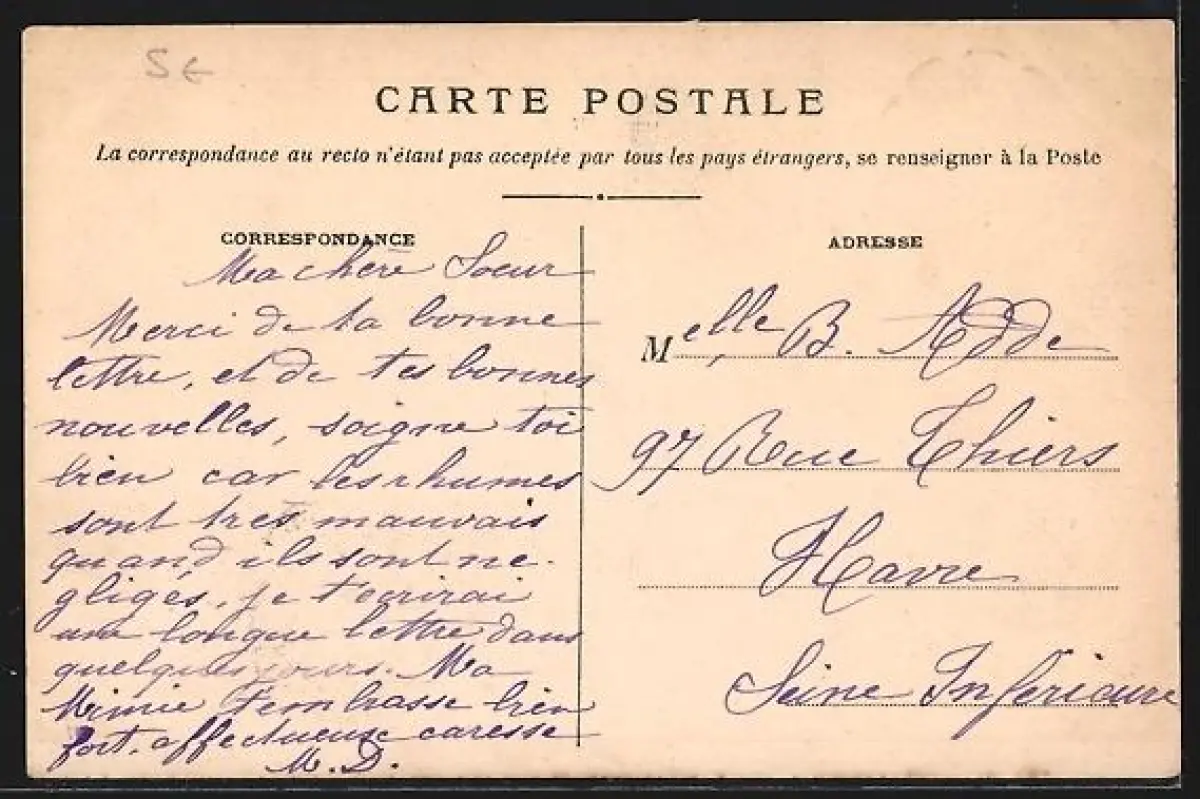 CARTE POSTALE
La correspondance au recto n'étant pas acceptée par tous les pays étrangers, se renseigner à la Poste
CORRESPONDANCE
Ma chère Soeur
Merci de ta bonne
lettre, et de tes bonnes
nouvelles, soigne toi
bien car les rhumes
sont tres mauvais
quand ils sont ne-
gligés, je t'ecrirai
une longue lettre dans
quelques jours. Ma
Mimie t'embrasse bien
fort, affectueuse caresse
M. D.
ADRESSE
Melle B. Adde
97 Rue Thiers
Havre
Seine Inferieure